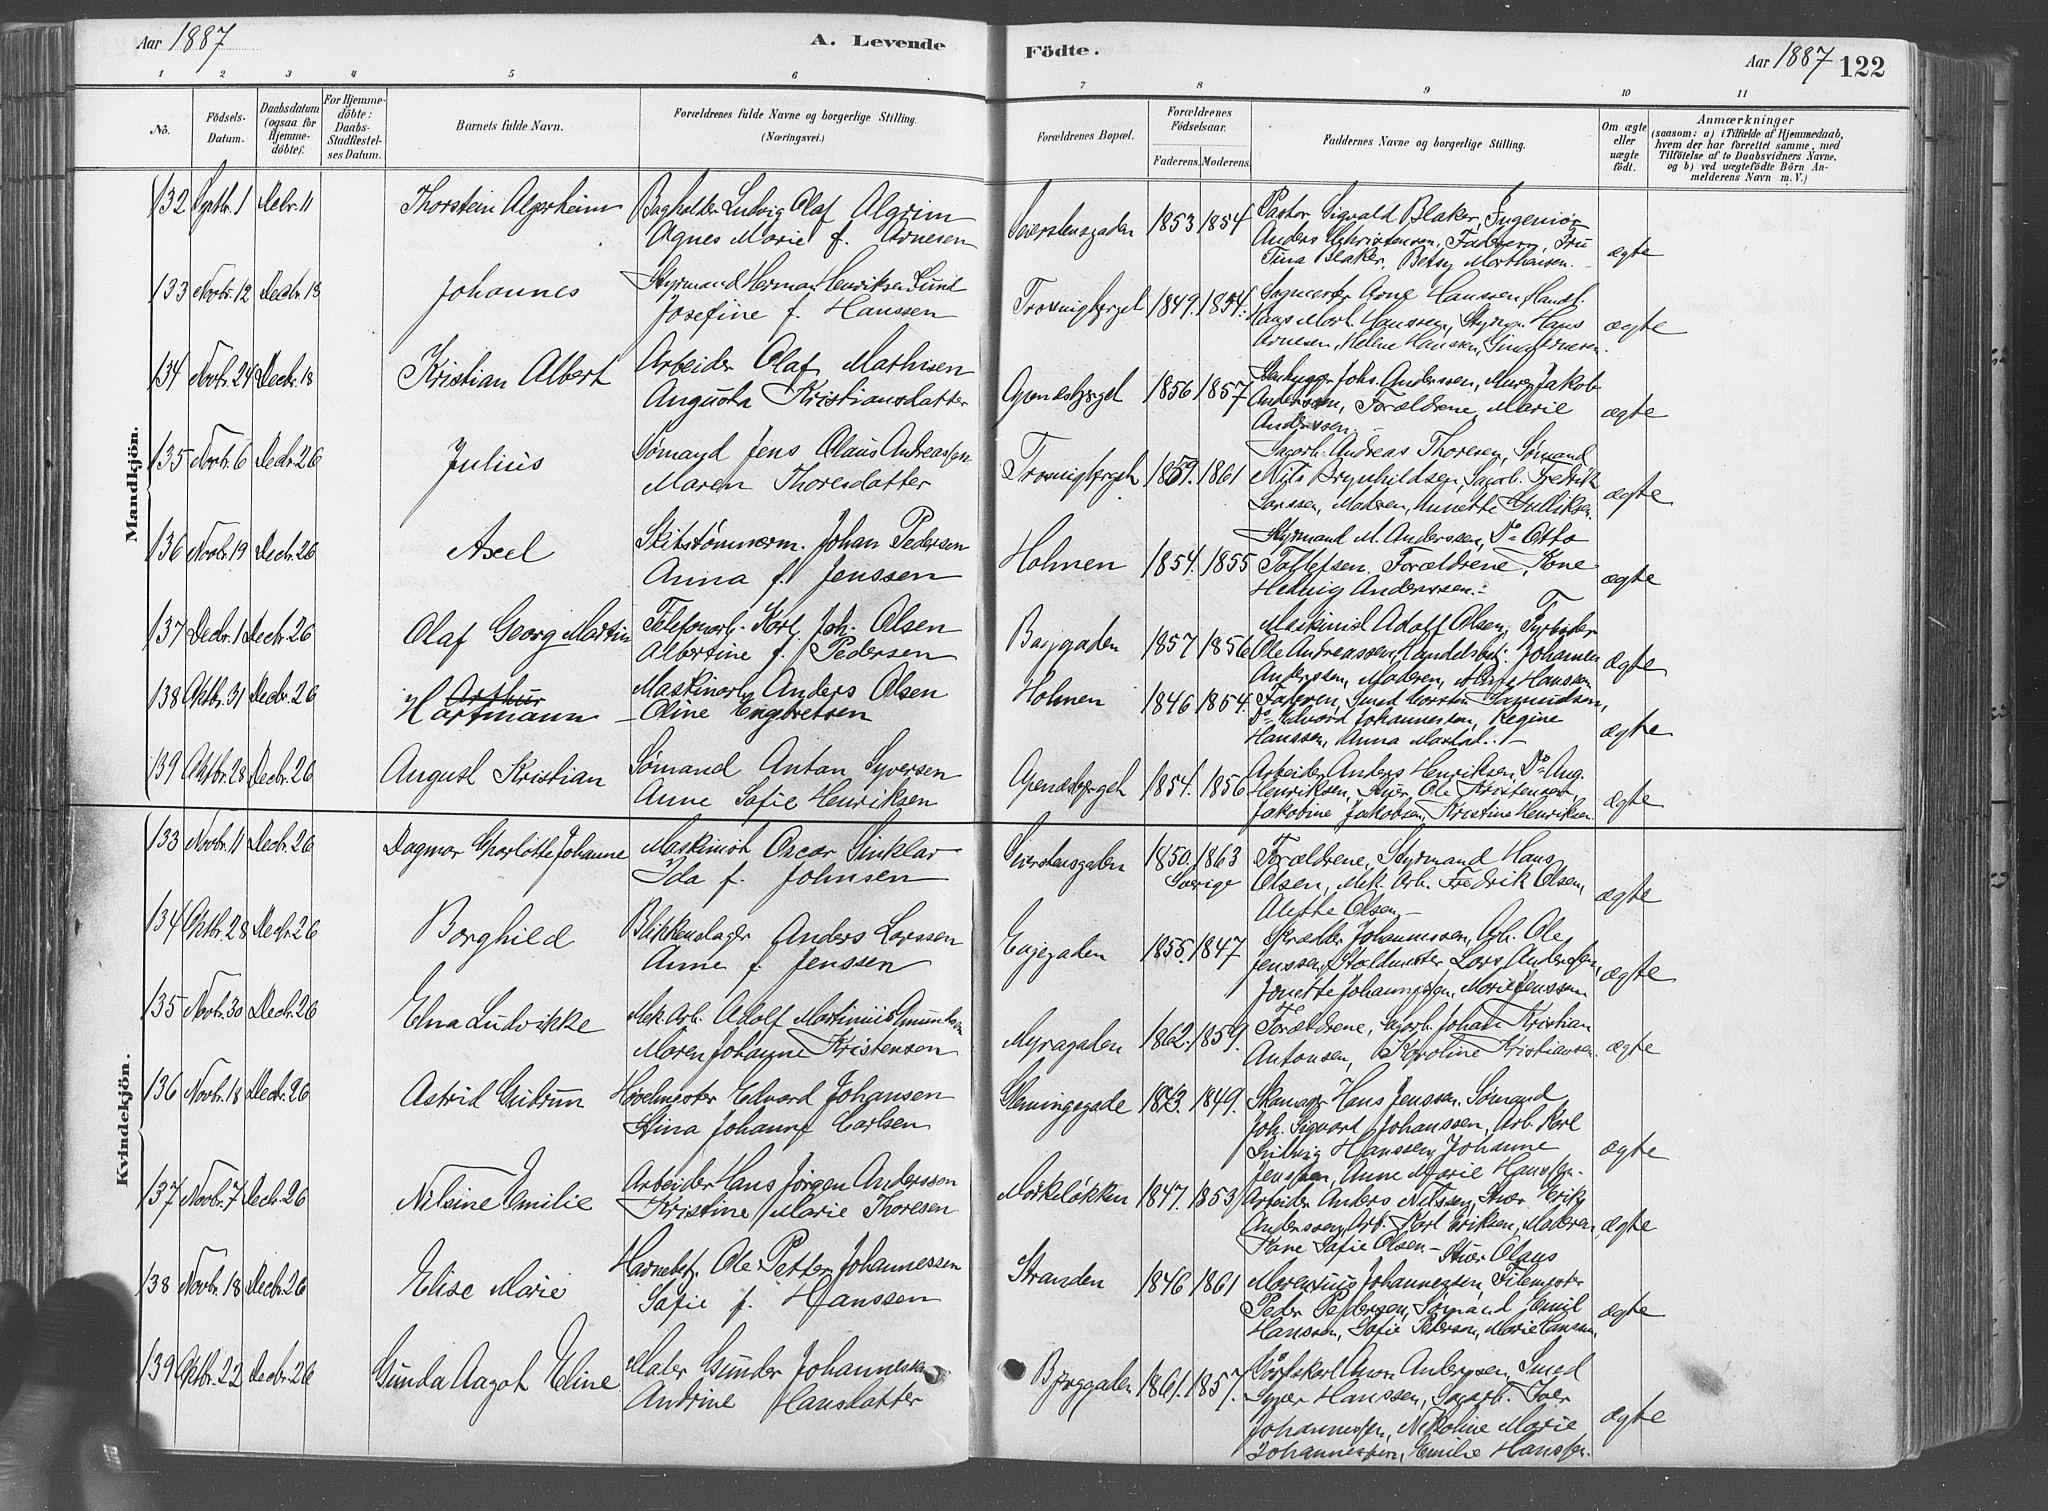 Aar 1887
A. Levende
Födte.
Aar 1887
122
1 2 3 4 5 6 7 8 9 10 11
No.
Födsels-Datum.
Daabsdatum (ogsaa for Hjemme-döbte).
For Hjemme-döbte: Daabs-Stadfæstel-ses Datum.
Barnets fulde Navn.
Forældrenes fulde Navne og borgerlige Stilling.
(Næringsvei.)
Forældrenes Bopæl.
Forældrenes Födselsaar.
Faderens. Moderens.
Faddernes Navne og borgerlige Stilling.
Om ægte eller uægte födt.
Anmærkninger
(saasom: a) i Tilfælde af Hjemmedaab,
hvem der har forrettet samme, med
Tilföielse af to Daabsvidners Navne,
og b) ved uægtefödte Börn An-
melderens Navn m. V.)
Mandkjön.
132 Septbr. 1 Decbr. 11 Thorstein Algerheim Bogholder Ludvig Olaf Algrim
Agnes Marie f. Arnesen
Seierstensgaden 1853 1854 Pastor Sigvald Blaker, Ingeniør
Anders Christensen, Faderen, Fru
Tina Blaker, Betsy Morthensen. ægte
133 Novbr. 12 Decbr. 18 Johannes Styrmand Herman Henriksen Lund
Josefine f. Hanssen
Trosvigberget 1849. 1854. Arne Hanssen, Handl.
Hans Hanssen, Styrm. Hans
Arnesen, Helene Hanssen, ægte
134 Novbr. 24 Decbr. 18 Kristian Albert Arbeider Olaf Mathisen
Augusta Kristiansdatter
Apenesberget 1856 1857 Stenhugger Johs. Anderssen, Murer Jakob
Anderssen, Forældrene, Marie
Anderssen. ægte
135 Novbr. 6 Decbr. 26 Julius Sømand Jens Olaus Andreassen
Maren Thoresdatter
Trosvigberget 1859. 1861 Sagarb. Andreas Thoresen, Sømand
Nils Brynhildsen, Sagarb. Fredrik
Larssen, Moderen, Annette Gulliksen. ægte
136 Novbr. 19 Decbr. 26 Axel Skibstømmerm. Johan Pedersen
Anna f. Jenssen
Holmen 1854. 1855 Styrmand M. Anderssen, Do Otto
Tollefsen, Forældrene, Kone
Hedvig Anderssen. ægte
137 Decbr. 1 Decbr. 26 Olaf Georg Martin Telefonarb. Karl Joh. Olsen
Albertine f. Pedersen
Baggaden 1857 1856 Maskinist Adolf Olsen, Fyrbøder
Ole Andreassen, Handelsbetj. Johannes
Anderssen, Moderen, Hanssen ægte
138 Oktbr. 31 Decbr. 26 Arthur
Hartmann Maskinarb. Anders Olsen
Oline Engbretsen
Holmen 1846 1854. Faderen, Smed Torsten Samuelsen,
Do Edvard Johannessen, Regine
Hanssen, Anna Mastad. ægte
139 Oktbr. 28 Decbr. 26 August Kristian Sømand Anton Syversen
Anne Sofie Henriksen
Apenesberget 1854. 1856 Arbeider Anders Henriksen, Do Aug.
Henriksen, Ole Kristensen
Jakobine Jakobsen, Kristine Henriksen. ægte
Kvindekjön.
133 Novbr. 11 Decbr. 26 Dagmar Charlotte Johanne Maskinist Oscar Sinklar
Ida f. Johnsen
Seierstensgaden 1850. 1863
Sverige Forældrene, Styrmand Hans
Olsen, Mek. Arb. Fredrik Olsen,
Alethe Olsen ægte
134 Oktbr. 28 Decbr. 26 Borghild Blikkenslager Anders Larssen
Anne f. Jenssen
Engegaden 1855. 1847 Skrædder Johannessen, Arb. Ole
Jenssen, Staldmester Lars Anderssen,
Jonette Johannessen, Marie Jenssen ægte
135 Novbr. 30 Decbr. 26 Elna Ludvikke Mek. Arb. Adolf Martinius Amundsen
Maren Johanne Kristensen
Myragaden 1862. 1859. Forældrene, Sagarb. Johan Kristian
Antonsen, Karoline Kristiansen. ægte
136 Novbr. 18 Decbr. 26 Astrid Gudrun Høvelmester Edvard Johansen
Stina Johanne Carlsen
Glemingegade 1843. 1849. Skomager Hans Jenssen, Sømand
Joh. Sigvart Johanssen, Arb. Karl
Ludvig Hanssen, Johanne
Jenssen, Anne Marie Hanssen. ægte
137 Novbr. 7 Decbr. 26 Nilsine Emilie Arbeider Hans Jörgen Anderssen
Kristine Marie Thoresen
Mørkeløkken 1847. 1853 Arbeider Anders Nilssen, Erik
Anderssen, Arb. Karl Eriksen, Moderen,
Kone Sofie Olsen ægte
138 Novbr. 18 Decbr. 26 Elise Marie Havnebetj. Ole Petter Johannessen
Sofie f. Hanssen
Stranden 1846 1861 Stuer Olaus
Morentius Johannessen, Filemester
Peder Pedersen, Sømand Emil
Hanssen, Sofie Pedersen, Marie Hanssen, ægte
139 Oktbr. 22 Decbr. 26 Gunda Aagot Eline Maler Gunder Johannessen
Andrine Hansdatter
Bjerggaden 1861. 1857. Anton Anderssen, Smed
Syver Hanssen, Sagarb. Iver
Johannessen, Nikoline Marie
Johannessen, Emilie Hanssen. ægte